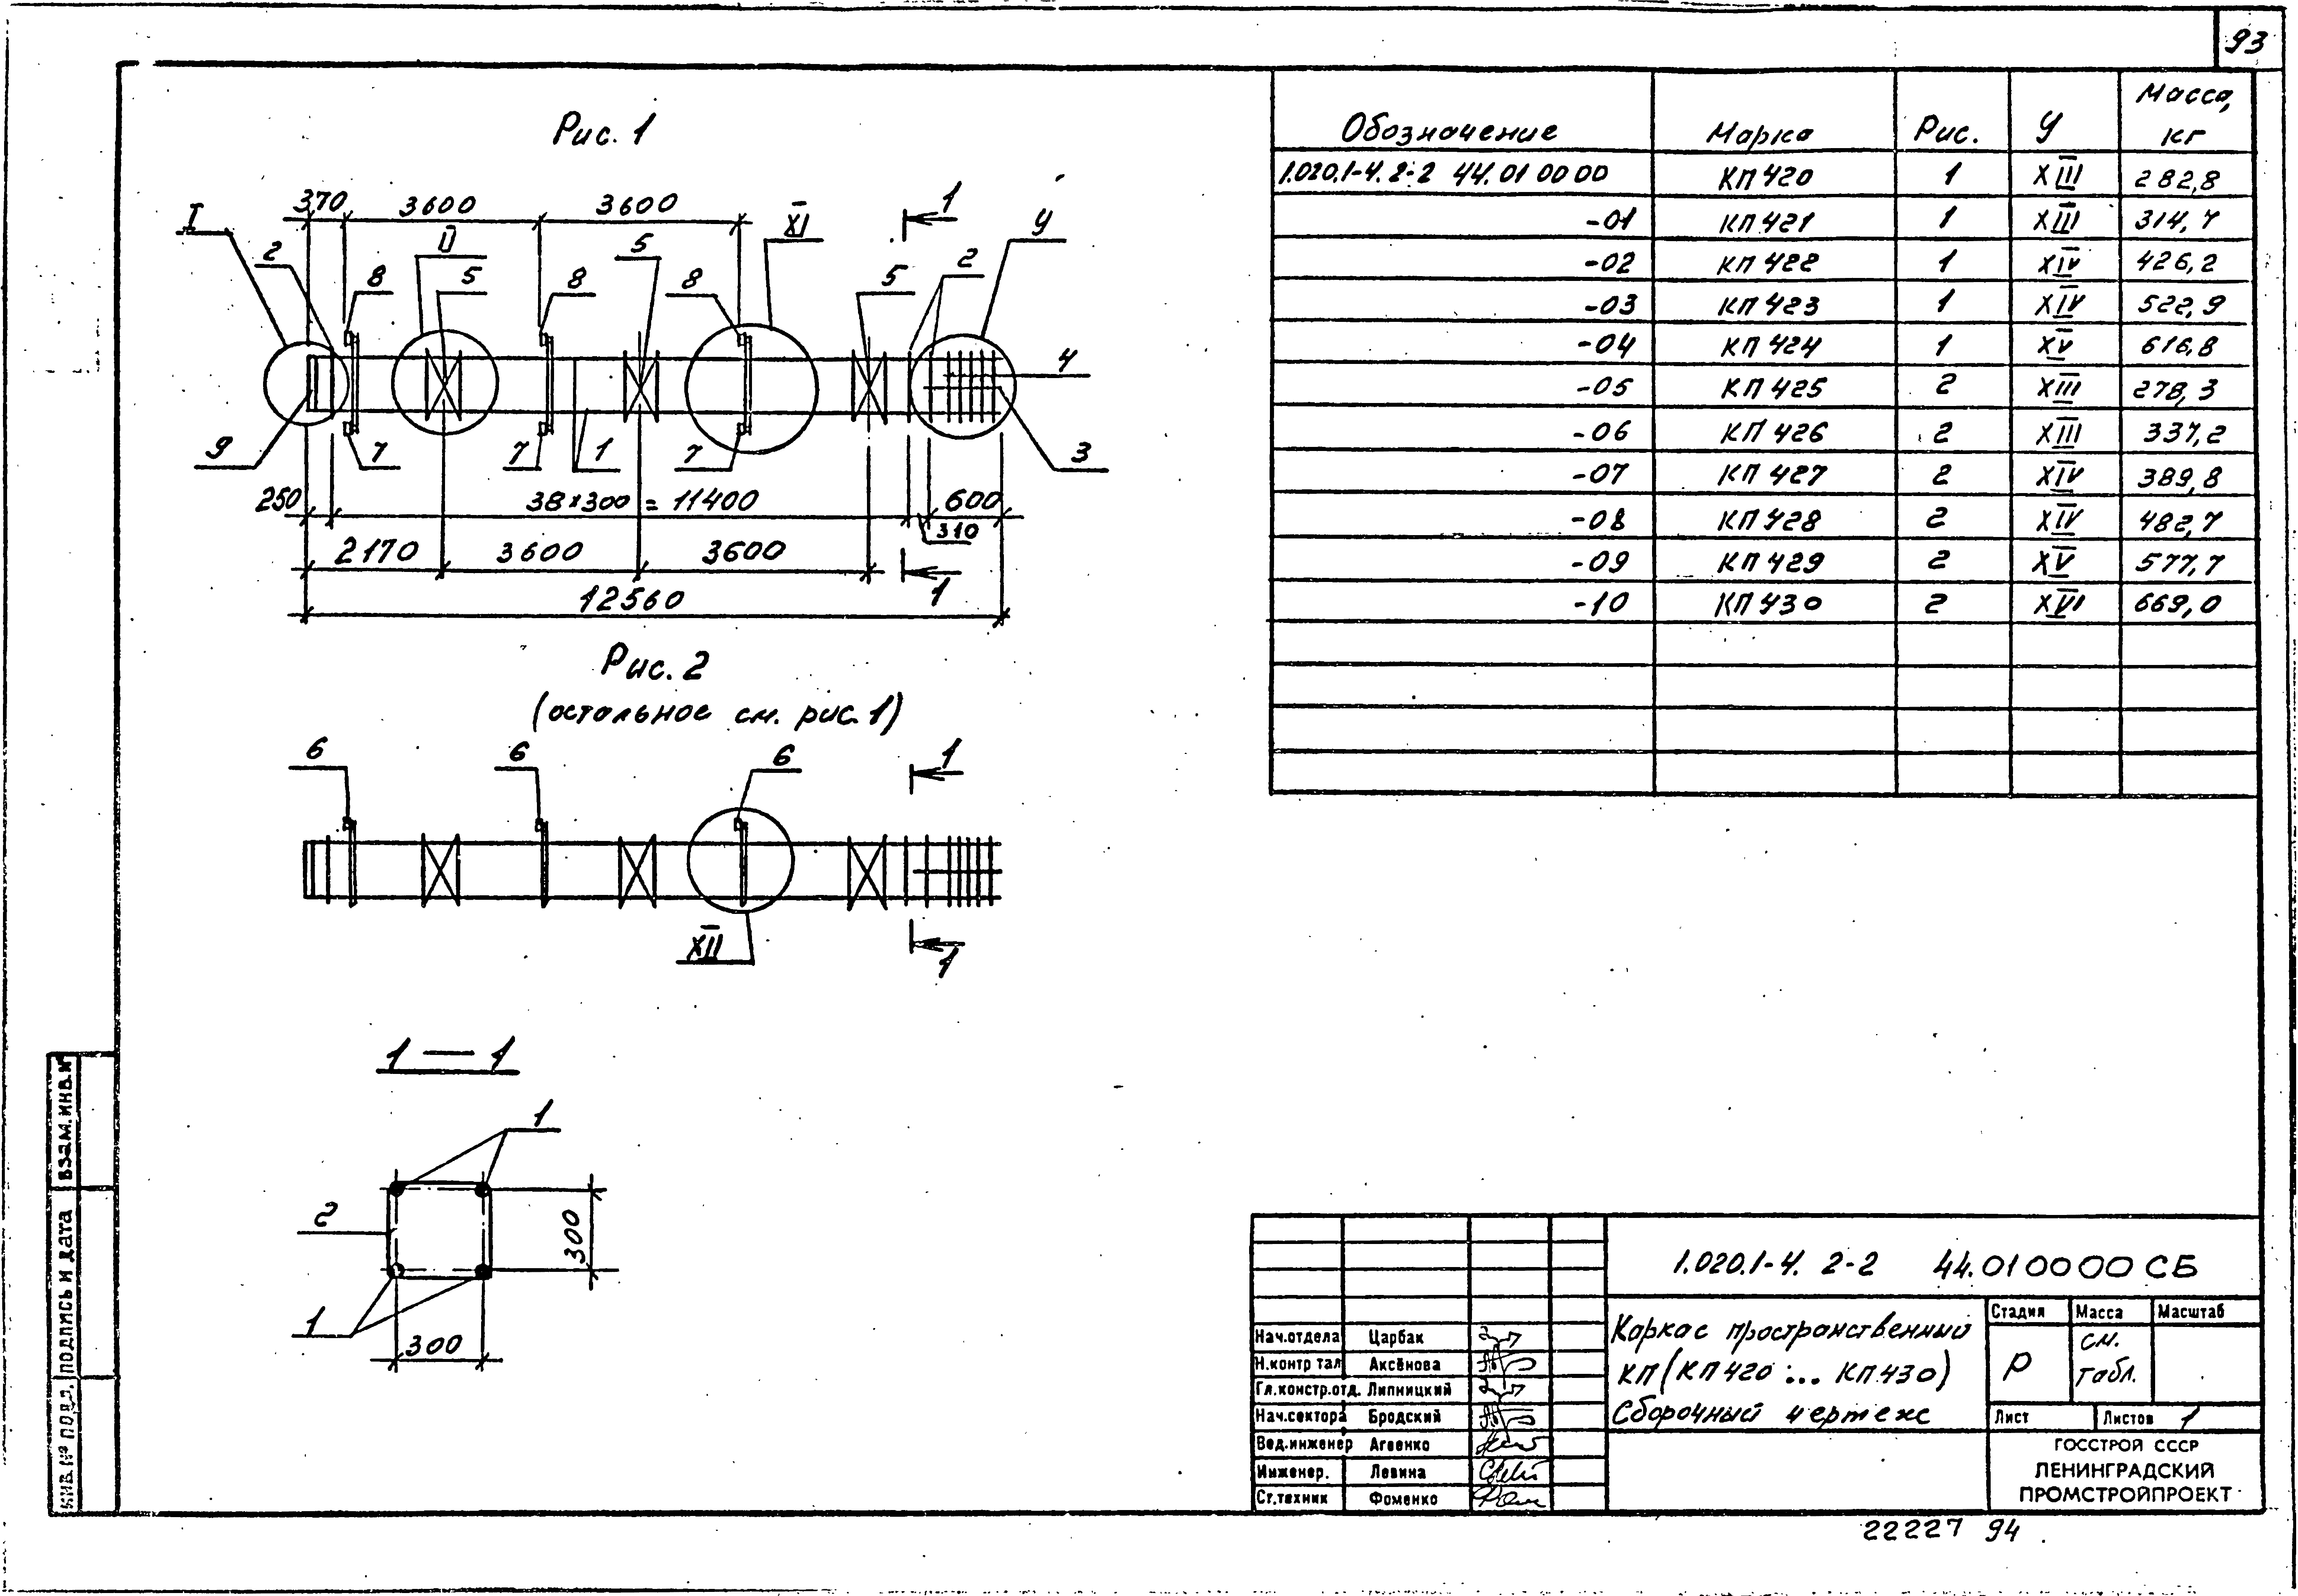 93
Рис. 1
370 3600 3600 1
I 2 8 II 5 8 5 8 XI 5 2 У
4
9 7 7 1 7 3
250 38×300 = 11400 600
310
2170 3600 3600
1
12560
Рис. 2
(остальное см. рис. 1)
6 6 6 1
XII 1
1 — 1
1
2
300
1
300
Обозначение Марка Рис. У Масса, кг
1.020.1-4. 2-2 44.01 00 00 КП 420 1 XIII 282,8
-01 КП 421 1 XIII 314,7
-02 КП 422 1 XIV 426,2
-03 КП 423 1 XIV 522,9
-04 КП 424 1 XV 616,8
-05 КП 425 2 XIII 278,3
-06 КП 426 2 XIII 337,2
-07 КП 427 2 XIV 389,8
-08 КП 428 2 XIV 482,7
-09 КП 429 2 XV 577,7
-10 КП 430 2 XVI 669,0
ИНВ.№ ПОДЛ. ПОДПИСЬ И ДАТА ВЗАМ.ИНВ.№
1.020.1-4. 2-2 44.01 00 00 СБ
Каркас пространственный
КП (КП 420 ... КП 430)
Сборочный чертеж
Стадия Масса Масштаб
Р см. табл.
Лист Листов 1
ГОССТРОЙ СССР
ЛЕНИНГРАДСКИЙ
ПРОМСТРОЙПРОЕКТ
Нач.отдела Царбак
Н.контр тал Аксёнова
Гл.констр.отд. Липницкий
Нач.сектора Бродский
Вед.инженер Агеенко
Инженер. Левина
Ст.техник Фоменко
22227 94